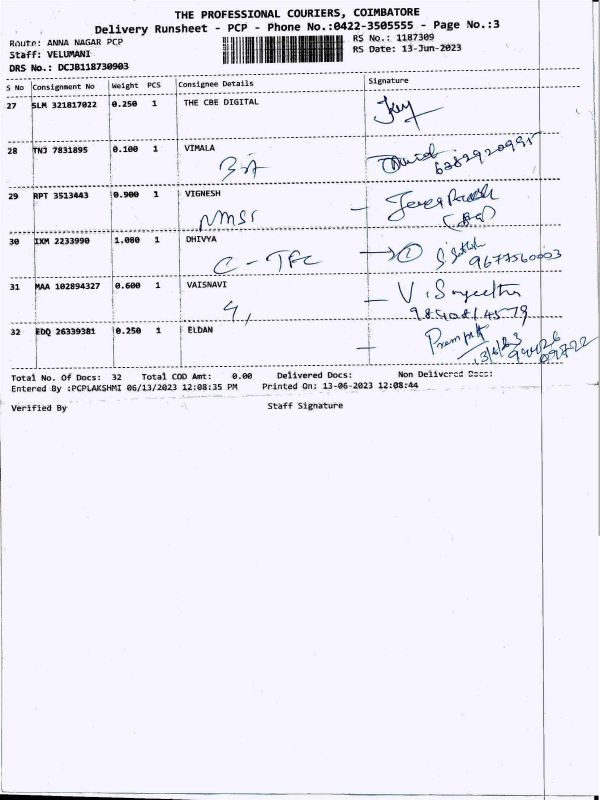 THE PROFESSIONAL COURIERS, COIMBATORE
Delivery Runsheet - PCP - Phone No.:0422-3505555 - Page No.:3
Route: ANNA NAGAR PCP
RS No.: 1187309
Staff: VELUMANI
RS Date: 13-Jun-2023
DRS No.: DCJB118730903
S No Consignment No Weight PCS Consignee Details Signature
27 SLM 321817022 0.250 1 THE CBE DIGITAL
28 TNJ 7831895 0.100 1 VIMALA
6382920995
29 RPT 3513443 0.900 1 VIGNESH
NMSS
30 IXM 2233990 1.000 1 DHIVYA
C - TFC
9677560003
31 MAA 102894327 0.600 1 VAISNAVI
V. Sangeetha
32 EDQ 26339381 0.250 1 ELDAN
13/6/23
Total No. Of Docs: 32 Total COD Amt: 0.00 Delivered Docs: Non Delivered Docs:
Entered By :PCPLAKSHMI 06/13/2023 12:08:35 PM Printed On: 13-06-2023 12:08:44
Verified By Staff Signature